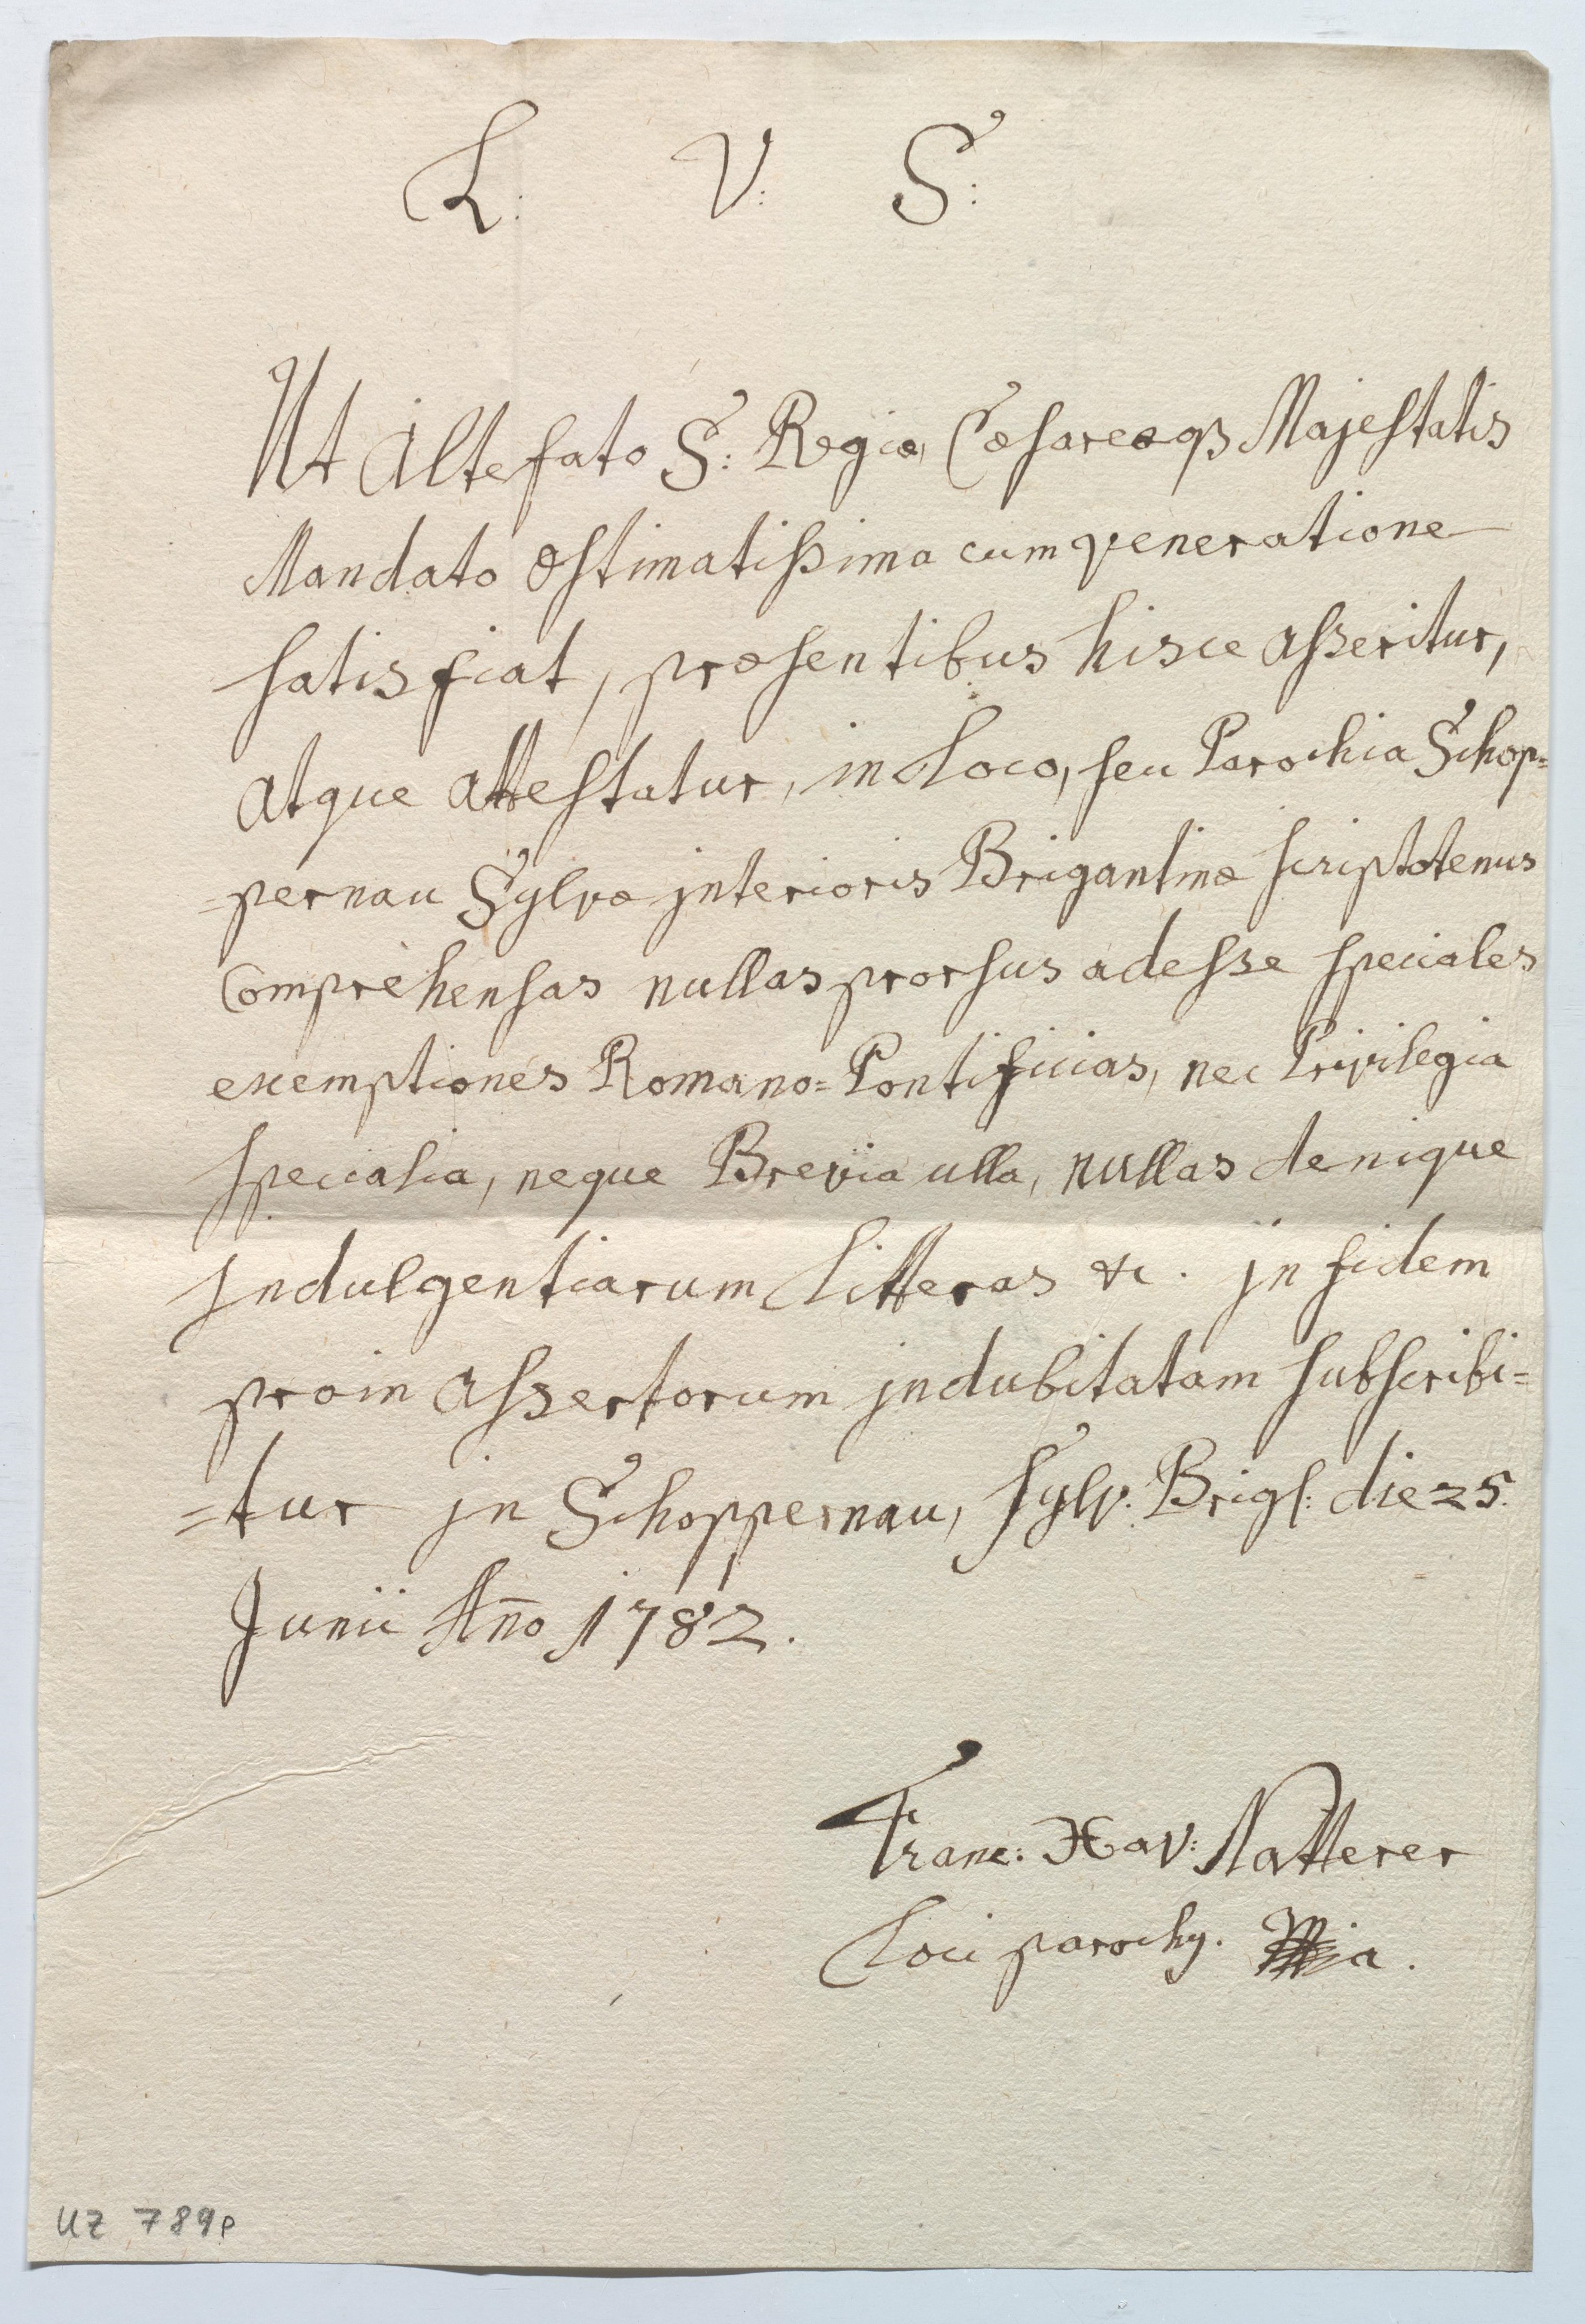 L: V: S:
Ut Altefato S: Regiæ, Cæsareæqȝ Majestatis
Mandato æstimatissima cum veneratione
satisfiat, præsentibus hisce asseritur,
Atque Attestatur, in Loco, seu Parochia Schop=
=pernau Sylvæ jnterioris Brigantinæ scriptotenus
Comprehensas nullas prorsus adesse speciales
exemptiones Romano=Pontificias, nec Privilegia
specialia, neque Brevia ulla, nullas denique
jndulgentiarum Litteras &c. jn fidem
proin Assertorum jndubitatam subscribi=
=tur jn Schoppernau, sylv. Brigs: die 25.
Junii Año 1782.
Franc: Xav: Natterer
Loci parochy. Mia.
UZ 789p